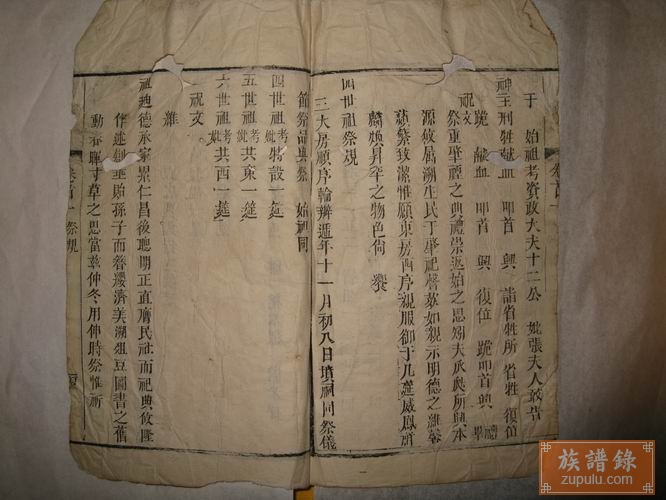 于 始祖考資政大夫十二公 妣張夫人敢告
神主刑牲獻血 叩首 興 詣省牲所 省牲 復位
跪 獻血 叩首 興 復位 跪叩首興 禮畢
祝文
祭重肇禋之典禮崇返始之思矧夫承庥所與本
源敬屆溯生民于肇祀馨薦如親示明德之維馨
蘋蘩致潔惟願東房西序親服御于几筵威鳳祥
麟煥昇平之物色尚 饗
四世祭規
三大房順序輪辦遞年十一月初八日墳祠同祭儀
節祭品與祭 始祖同
四世祖考妣特設一筵
五世祖考妣共東一筵
六世祖考妣共西一筵
祝文
維
祖廸德承家累仁昌後聰明正直膺民社而祀典攸隆
作述創垂貽孫子而簪纓濟美溯俎豆圖書之舊
動春暉寸草之思當茲仲冬用伸時祭惟祈
卷首 祭規
卷首
族譜錄
zupulu.com